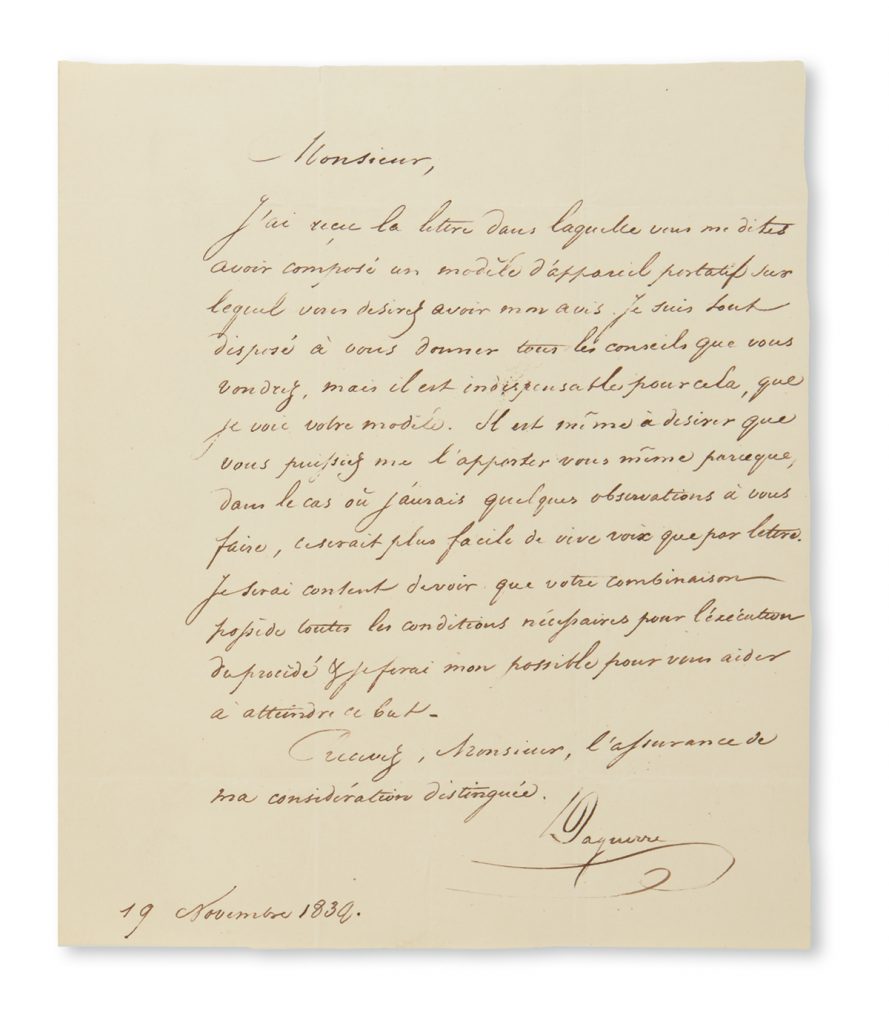 Monsieur,
J'ai reçu la lettre dans laquelle vous me dites
avoir composé un modèle d'appareil portatif sur
lequel vous desirez avoir mon avis. Je suis tout
disposé à vous donner tous les conseils que vous
voudrez, mais il est indispensable pour cela, que
je voie votre modèle. Il est même à desirer que
vous puissiez me l'apporter vous même parceque,
dans le cas où j'aurais quelques observations à vous
faire, ce serait plus facile de vive voix que par lettre.
Je serai content de voir que votre combinaison
possède toutes les conditions nécessaires pour l'éxécution
du procédé & je ferai mon possible pour vous aider
à atteindre ce but -
Recevez, Monsieur, l'assurance de
ma considération distinguée.
Daguerre
19 Novembre 1839.